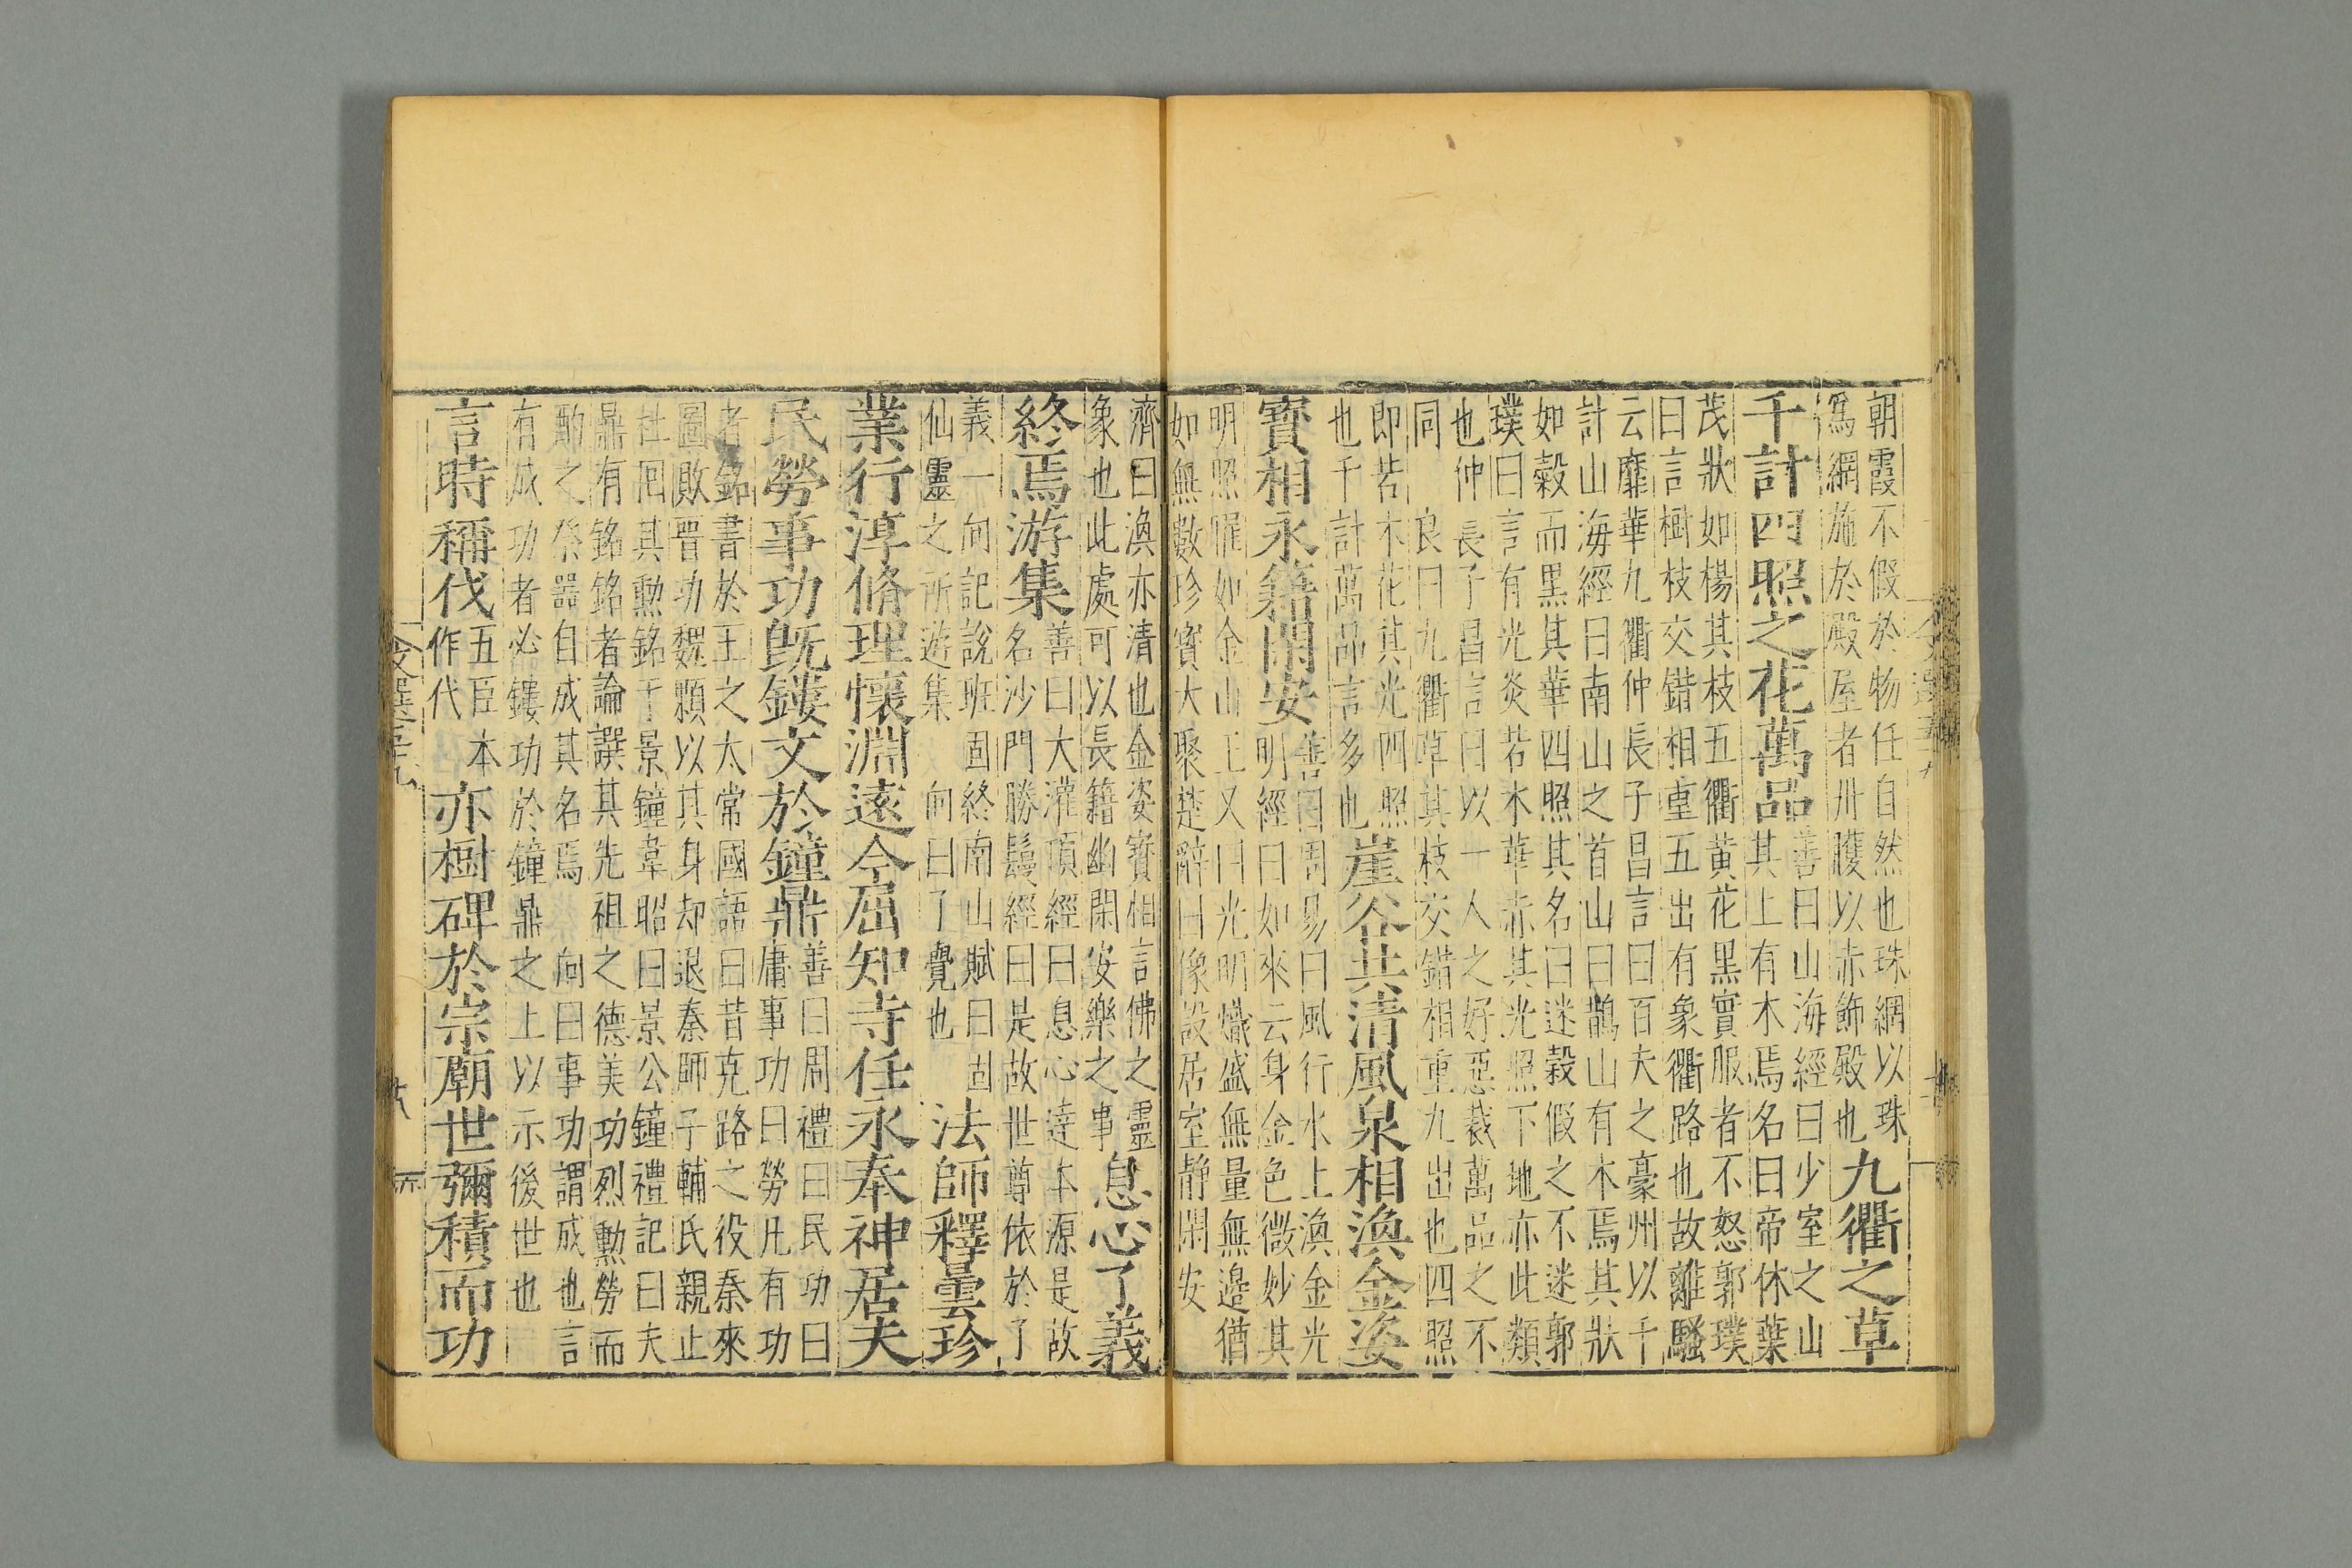 朝霞不假於物任自然也珠網以珠
爲網施於殿屋者丹雘以赤飾殿也九衢之草
千計四照之花萬品善曰山海經曰少室之山
其上有木焉名曰帝休葉
茂狀如楊其枝五衢黄花黑實服者不怒郭璞
曰言樹枝交錯相重五出有象衢路也故離騷
云靡華九衢仲長子昌言曰百夫之豪州以千
計山海經曰南山之首山曰鵲山有木焉其狀
如榖而黑其華四照其名曰迷榖假之不迷郭
璞曰言有光炎若木華赤其光照下地亦此類
也仲長子昌言曰以一人之好惡裁萬品之不
同良曰九衢草其枝交錯相重九出也四照
即若木花其光四照
也千計萬品言多也崖谷共清風泉相渙金姿
寶相永籍閑安善曰周易曰風行水上渙金光
明經曰如來云身金色微妙其
明照曜如金山王又曰光明熾盛無量無邊猶
如無數珍寶大聚楚辭曰像設居室静閑安
濟曰渙亦清也金姿寶相言佛之靈
象也此處可以長籍幽閑安樂之事息心了義
終焉游集善曰大灌頂經曰息心達本源是故
名沙門勝鬘經曰是故世尊依於了
義一向記說班固終南山賦曰固
仙靈之所遊集向曰了覺也法師釋曇珍
業行淳脩理懷淵遠今屈知寺任永奉神居夫
民勞事功既鏤文於鐘鼎善曰周禮曰民功曰
庸事功曰勞凡有功
者銘書於王之太常國語曰昔克路之役秦來
圖敗晉功魏顆以其身却退秦師于輔氏親止
杜回其勳銘于景鐘韋昭曰景公鐘禮記曰夫
鼎有銘銘者論譔其先祖之德美功烈勳勞而
酌之祭器自成其名焉向曰事功謂成也言
有成功者必鏤功於鐘鼎之上以示後世也
言時稱伐五臣本
作代亦樹碑於宗廟世彌積而功